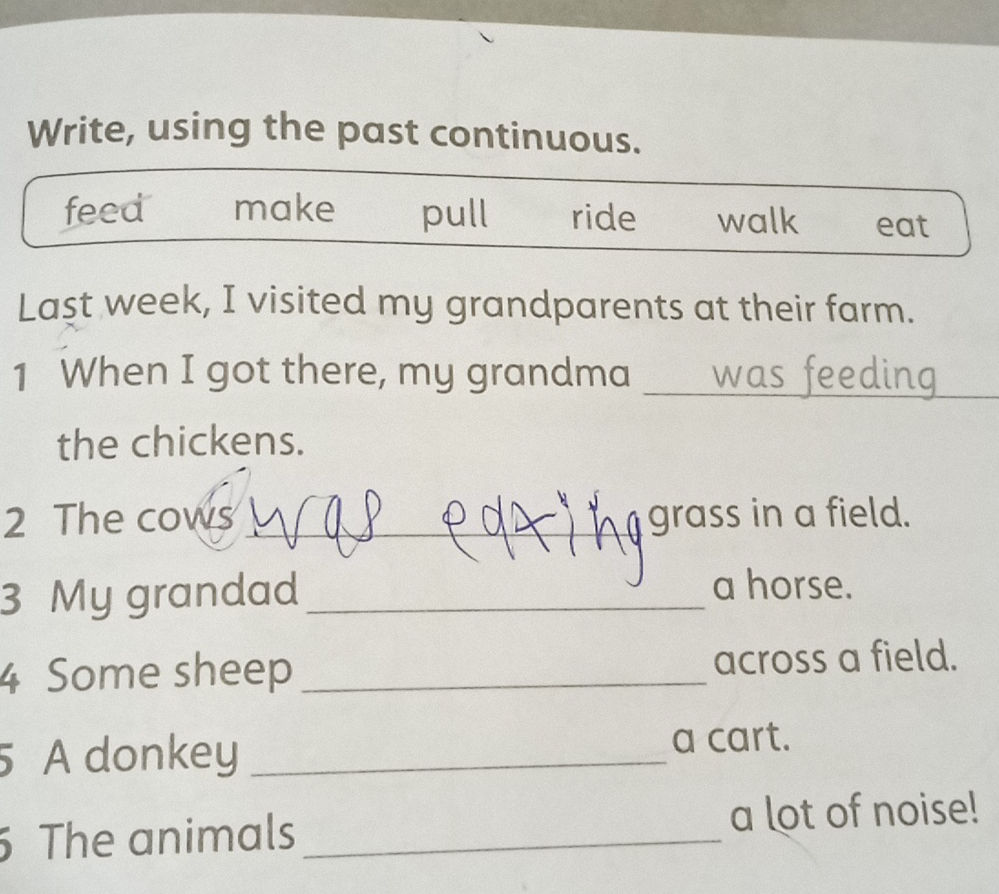 Write, using the past continuous.
feed make pull ride walk eat
Last week, I visited my grandparents at their farm.
1 When I got there, my grandma was feeding
the chickens.
2 The cows was eating grass in a field.
3 My grandad a horse.
4 Some sheep across a field.
5 A donkey a cart.
6 The animals a lot of noise!